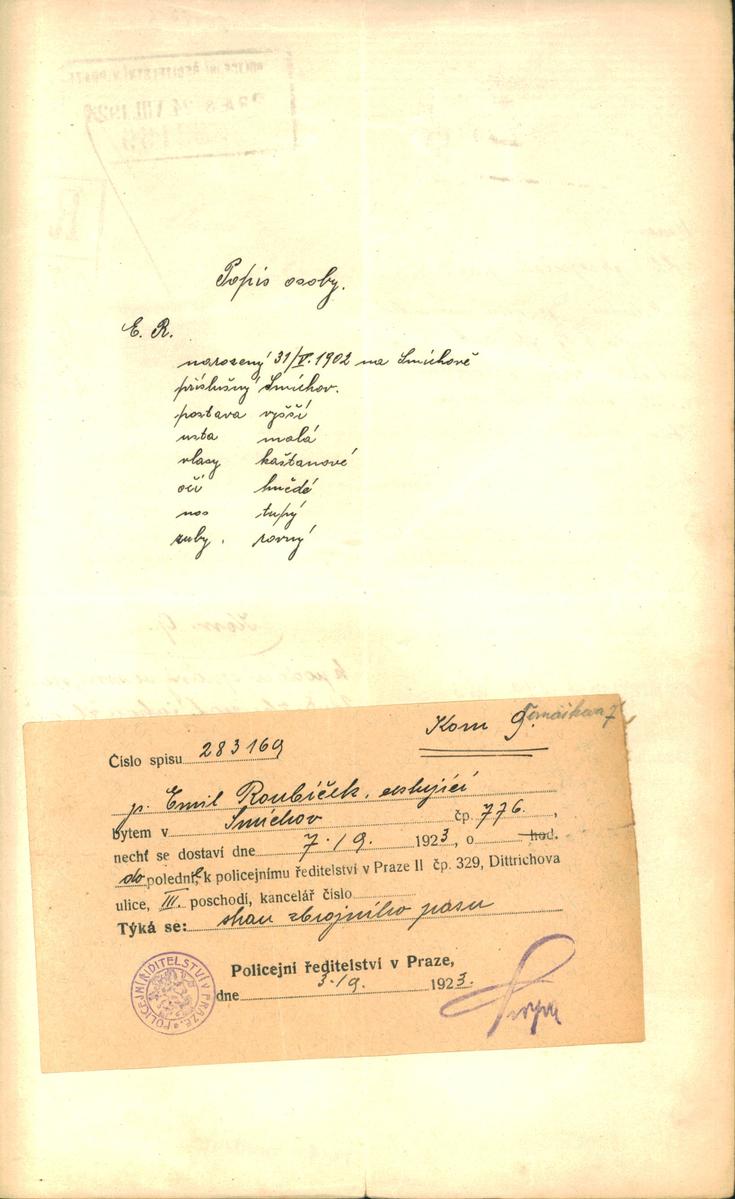 Popis osoby.
E. R.
narozený 31/V. 1902 na Smíchově
příslušný Smíchov.
postava vyšší
usta malá
vlasy kaštanové
oči hnědé
nos tupý
zuby. rovný
Kom 9.
Číslo spisu 283169
p. Emil Roubíček, cestující
bytem v Smíchov čp. 776.,
nechť se dostaví dne 7./9. 1923, o hod.
do poledne k policejnímu ředitelství v Praze II čp. 329, Dittrichova
ulice, III. poschodí, kancelář číslo
Týká se: zbrojního pasu
Policejní ředitelství v Praze,
dne 3./9. 1923.
POLICEJNÍ ŘEDITELSTVÍ V PRAZE